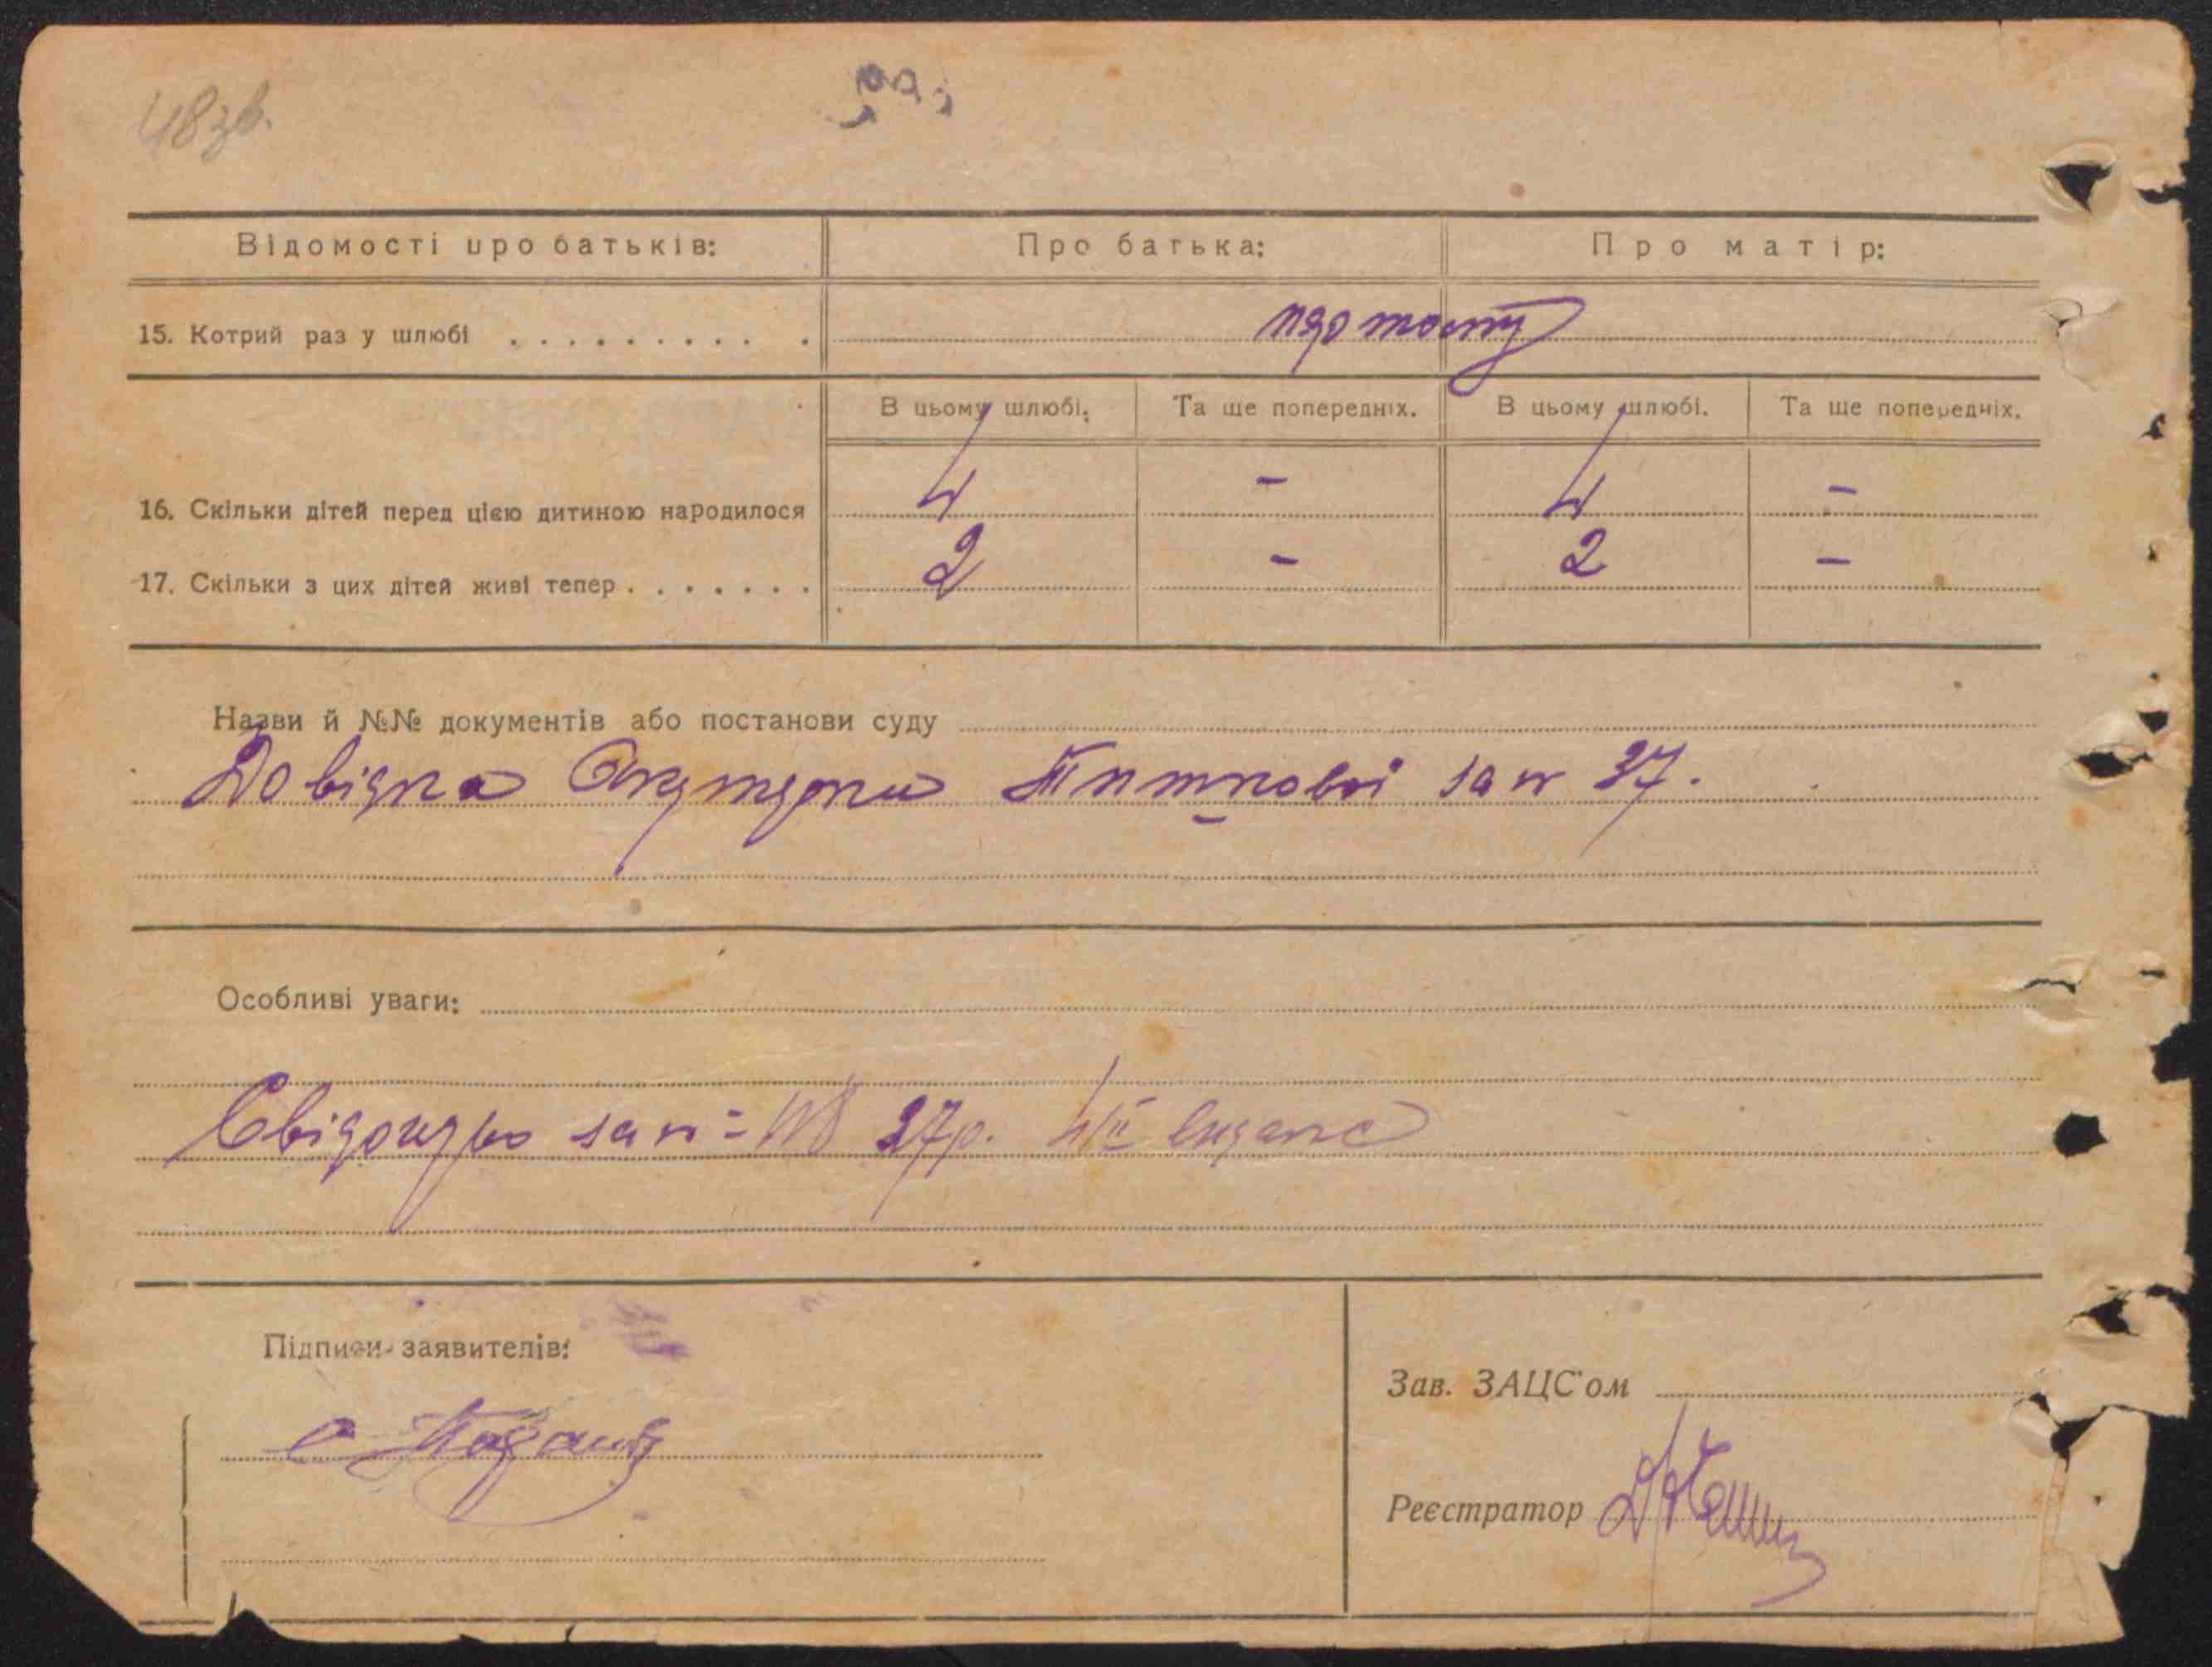 48 зв.
Відомості про батьків: Про батька: Про матір:
15. Котрий раз у шлюбі . . . . . . . . . .
В цьому шлюбі. Та ще попередніх. В цьому шлюбі. Та ще попередніх.
16. Скільки дітей перед цією дитиною народилося 4 - 4 -
17. Скільки з цих дітей живі тепер . . . . . . . 2 - 2 -
Назви й №№ документів або постанови суду
Довідка за № 37.
Особливі уваги:
за № видане
Підписи заявителів:
Зав. ЗАЦС'ом
Реєстратор